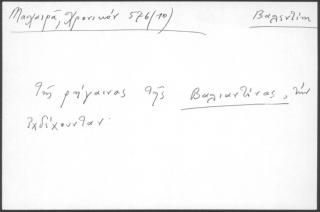 Μαχαιρᾶ, Χρονικόν 576/10) Βαλεντίνα
τῆς ρήγαινας τῆς Βαλιαντίνας, τὴν
ἐκδέχουνταν·